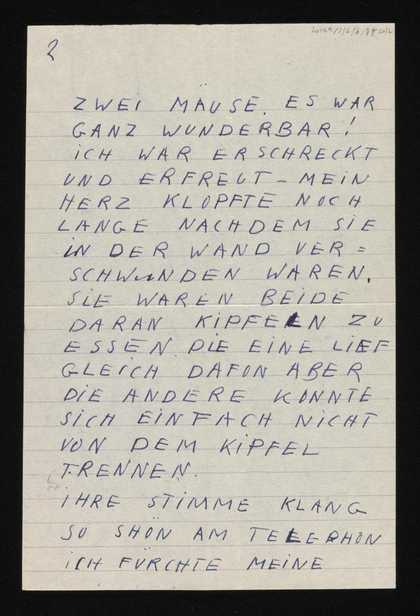 2
ZWEI MÄUSE. ES WAR
GANZ WUNDERBAR!
ICH WAR ERSCHRECKT
UND ERFREUT – MEIN
HERZ KLOPFTE NOCH
LANGE NACHDEM SIE
IN DER WAND VER=
SCHWUNDEN WAREN.
SIE WAREN BEIDE
DARAN KIPFELN ZU
ESSEN. DIE EINE LIEF
GLEICH DAFON ABER
DIE ANDERE KONNTE
SICH EINFACH NICHT
VON DEM KIPFEL
TRENNEN.
IHRE STIMME KLANG
SO SHÖN AM TELEPHON
ICH FÜRCHTE MEINE